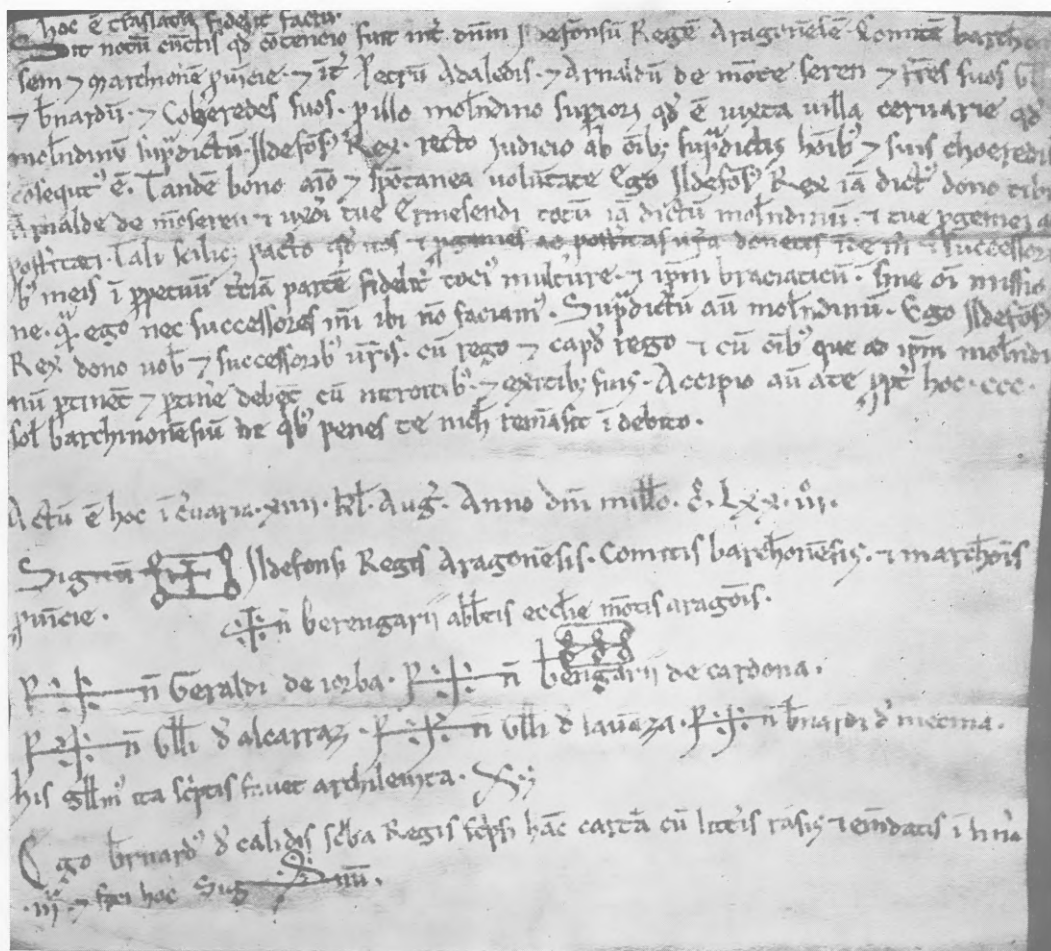 hoc ē trāslatū fidelit̄ factū.
Sit notū cūctis qd̄ cōtencio fuit int̄ dn̄m Jldefonsū Regē Aragonēsē. Comitē barchon
sem ⁊ marchionē puīcie. ⁊ īt̄ Petrū Adaledis. ⁊ Arnaldū de mōte seren ⁊ frēs suos
⁊ b̄nardū. ⁊ Coheredes suos. p illo molēdino supiori qd̄ ē iuxta uilla ceruarie qd̄
molēdinū sup̄dictū. Jldefons᾽ Rex. recto judicio ab oīb; sup̄dictis hōib᾽ ⁊ suis choeredib
cōsequt᾽ ē. Tandē bono aīo ⁊ spōtanea uolūtate Ego Jldefons᾽ Rex iā dict᾽ dono tibi
Arnalde de mōseren ⁊ uxōi tue Ermesendi totū iā dictū molēdinū. ⁊ tue pgeniei ac
post̄itati. Tali scilic; pacto qd̄ uos ⁊ pgenies ac post̄itas ur̄a donetis īde m̄ ⁊ successori
b᾽ meis ī ppetuū t̄ciā partē fidelit̄ toci᾽ multure. ⁊ ip̄m braciaticū. sine oī missio
ne. q̄. ego nec successores m̄i ibi nō faciam᾽. Sup̄dictū aū molēdinū. Ego Jldefons᾽
Rex dono uob᾽ ⁊ successorib᾽ ur̄is. cū rego ⁊ capd̄ rego ⁊ cū oīb᾽ que ad ip̄m molēdi
nū ptinēt ⁊ ptinēe debēt cū introitib᾽. ⁊ exitib; suis. Accipio aū a te ppt̄ hoc. ccc.
sol̄ barchinonēsiū de qb᾽ penes te nich̄ remāsit ī debito.
Actū ē hoc ī c̄uaria. xiiii. kl̄. Aug̃. Anno dn̄i mill̄o. c̊. Lxx. iiı̊.
Signū Jldefonsi Regis Aragonēsis. Comitis barch̄onēsis. ⁊ march̄onis
puīcie. n̄ berengarii abb̄tis eccl̄ie mōtis aragōis.
n̄ Geraldi de iorba. n̄ bengarii de cardona.
n̄ Gll̄i d̄ alcarraz. n̄ Gll̄i d̄ lauāza. n̄ b̄nardi d̄
his gll̄m᾽ ita sc̄ptis fauet archileuita.
Ego b̄rnard᾽ d̄ calidis sc̄ba Regis sc̄psi hāc cartā cū litt̄is rasis ⁊ em̄datis ī
. ⁊ feci hoc Sig nū.